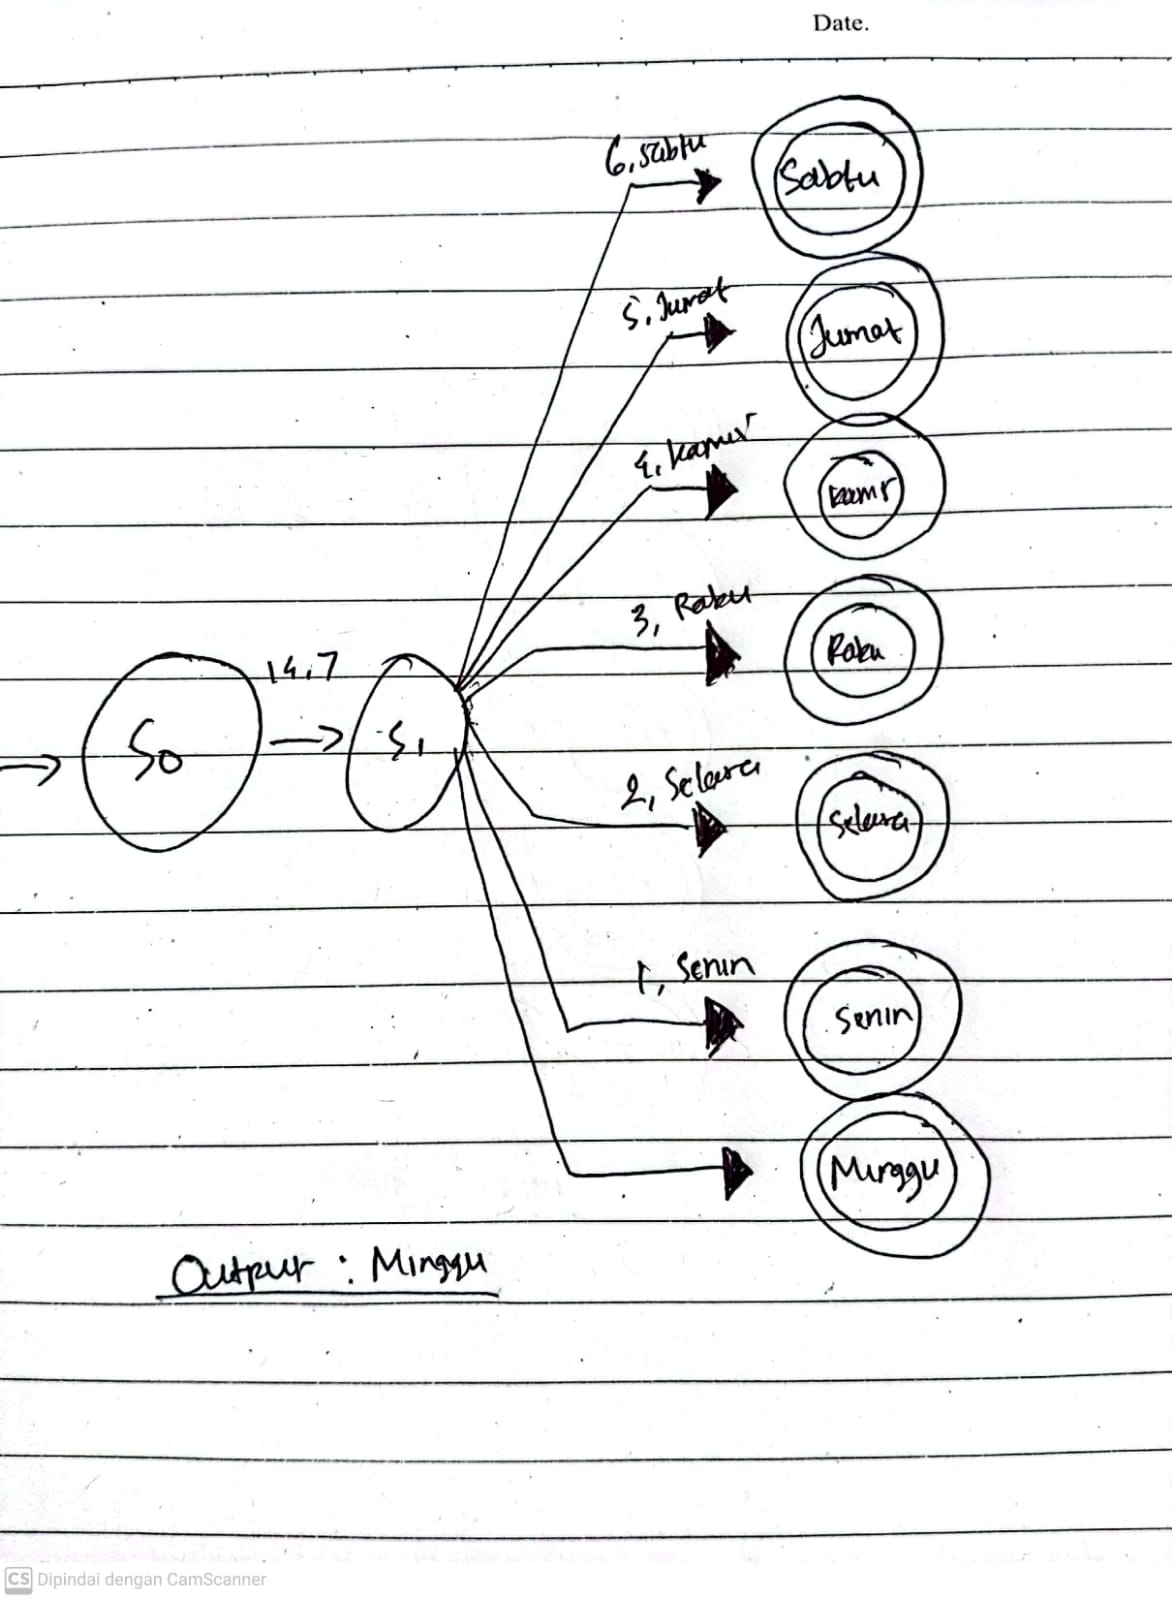 Date.
6, Sabtu
Sabtu
5, Jumat
Jumat
4, Kamis
Kams
3, Rabu
Rabu
14, 7
S0
S1
2, Selasa
Selasa
1, Senin
Senin
Minggu
Output : Minggu
CS Dipindai dengan CamScanner